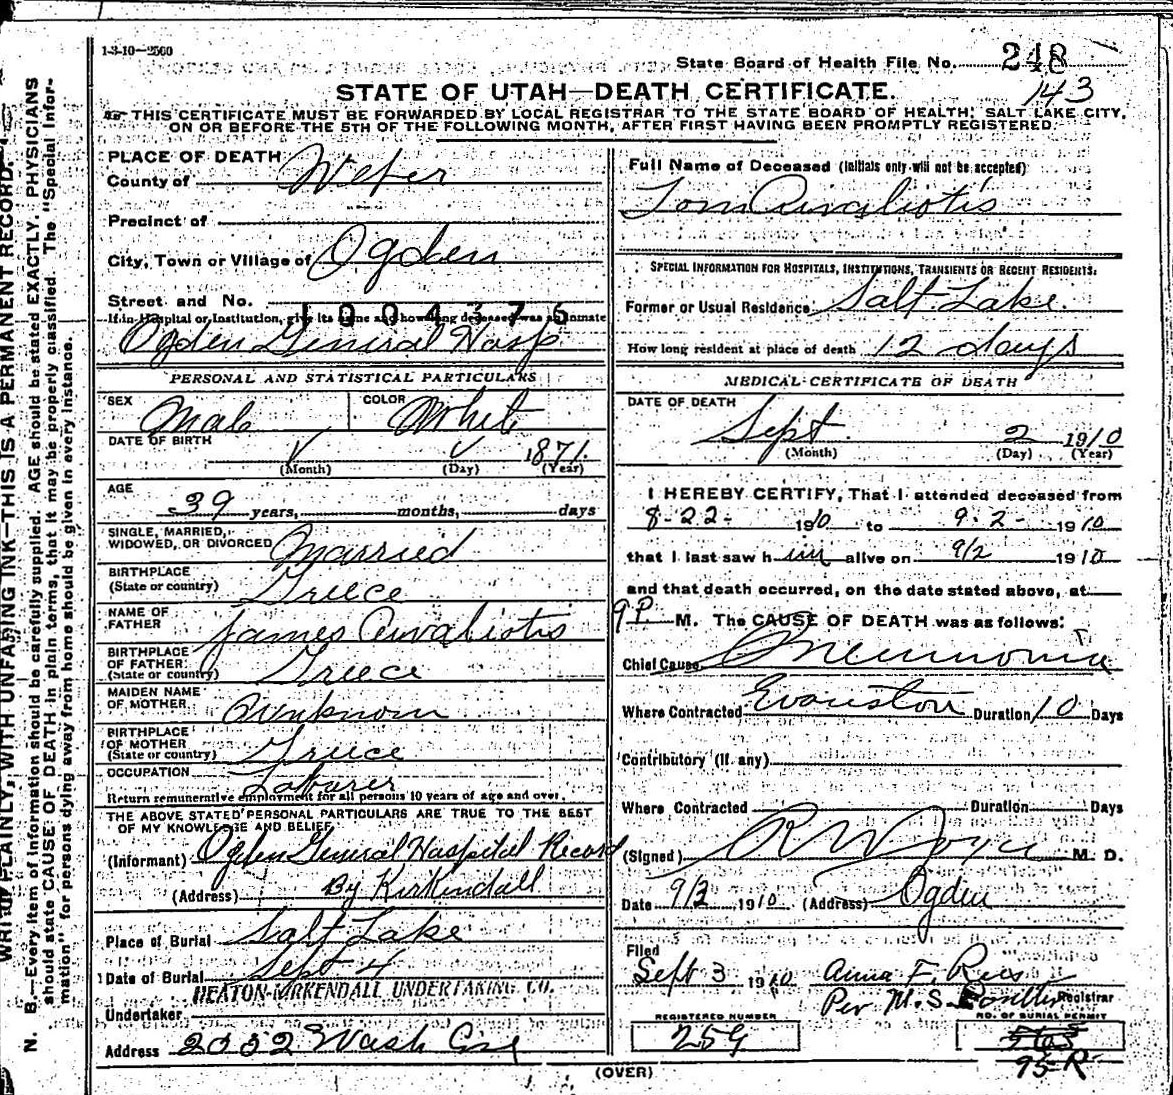 1-3-10—2500
State Board of Health File No. 248
143
STATE OF UTAH—DEATH CERTIFICATE.
THIS CERTIFICATE MUST BE FORWARDED BY LOCAL REGISTRAR TO THE STATE BOARD OF HEALTH, SALT LAKE CITY,
ON OR BEFORE THE 5TH OF THE FOLLOWING MONTH, AFTER FIRST HAVING BEEN PROMPTLY REGISTERED.
PLACE OF DEATH
County of Weber
Precinct of
City, Town or Village of Ogden
Street and No.
1004376
If in Hospital or Institution, give its name and how long deceased was an inmate
Ogden General Hosp
PERSONAL AND STATISTICAL PARTICULARS
SEX Male COLOR White
DATE OF BIRTH
1871
(Month) (Day) (Year)
AGE
39 years, months, days
SINGLE, MARRIED,
WIDOWED, OR DIVORCED Married
BIRTHPLACE
(State or country) Greece
NAME OF
FATHER James Avaliotis
BIRTHPLACE
OF FATHER
(State or country) Greece
MAIDEN NAME
OF MOTHER Unknown
BIRTHPLACE
OF MOTHER
(State or country) Greece
OCCUPATION Laborer
Return remunerative employment for all persons 10 years of age and over.
THE ABOVE STATED PERSONAL PARTICULARS ARE TRUE TO THE BEST
OF MY KNOWLEDGE AND BELIEF
(Informant) Ogden General Hospital Record
(Address) By Kirkendall
Place of Burial Salt Lake
Date of Burial Sept 4
HEATON-KIRKENDALL UNDERTAKING CO.
Undertaker
Address 2332 Wash Ave
Full Name of Deceased (Initials only will not be accepted)
Tom Avaliotis
SPECIAL INFORMATION FOR HOSPITALS, INSTITUTIONS, TRANSIENTS OR RECENT RESIDENTS.
Former or Usual Residence Salt Lake.
How long resident at place of death 12 days
MEDICAL CERTIFICATE OF DEATH
DATE OF DEATH
Sept. 2 1910
(Month) (Day) (Year)
I HEREBY CERTIFY, That I attended deceased from
8-22- 1910 to 9-2- 1910
that I last saw him alive on 9/2 1910
and that death occurred, on the date stated above, at
9 P. M. The CAUSE OF DEATH was as follows:
Chief Cause Pneumonia
Where Contracted Evanston Duration 10 Days
Contributory (If any)
Where Contracted Duration Days
(Signed) R W Joyce M. D.
Date 9/3 1910 (Address) Ogden
Filed
Sept 3 1910 Anna F. Rees
Per M. S. Poulter Registrar
REGISTERED NUMBER
259
NO. OF BURIAL PERMIT
95-R
(OVER)
WRITE PLAINLY, WITH UNFADING INK—THIS IS A PERMANENT RECORD.
N. B.—Every item of information should be carefully supplied. AGE should be stated EXACTLY. PHYSICIANS
should state CAUSE OF DEATH in plain terms, that it may be properly classified. The "Special Infor-
mation" for persons dying away from home should be given in every instance.